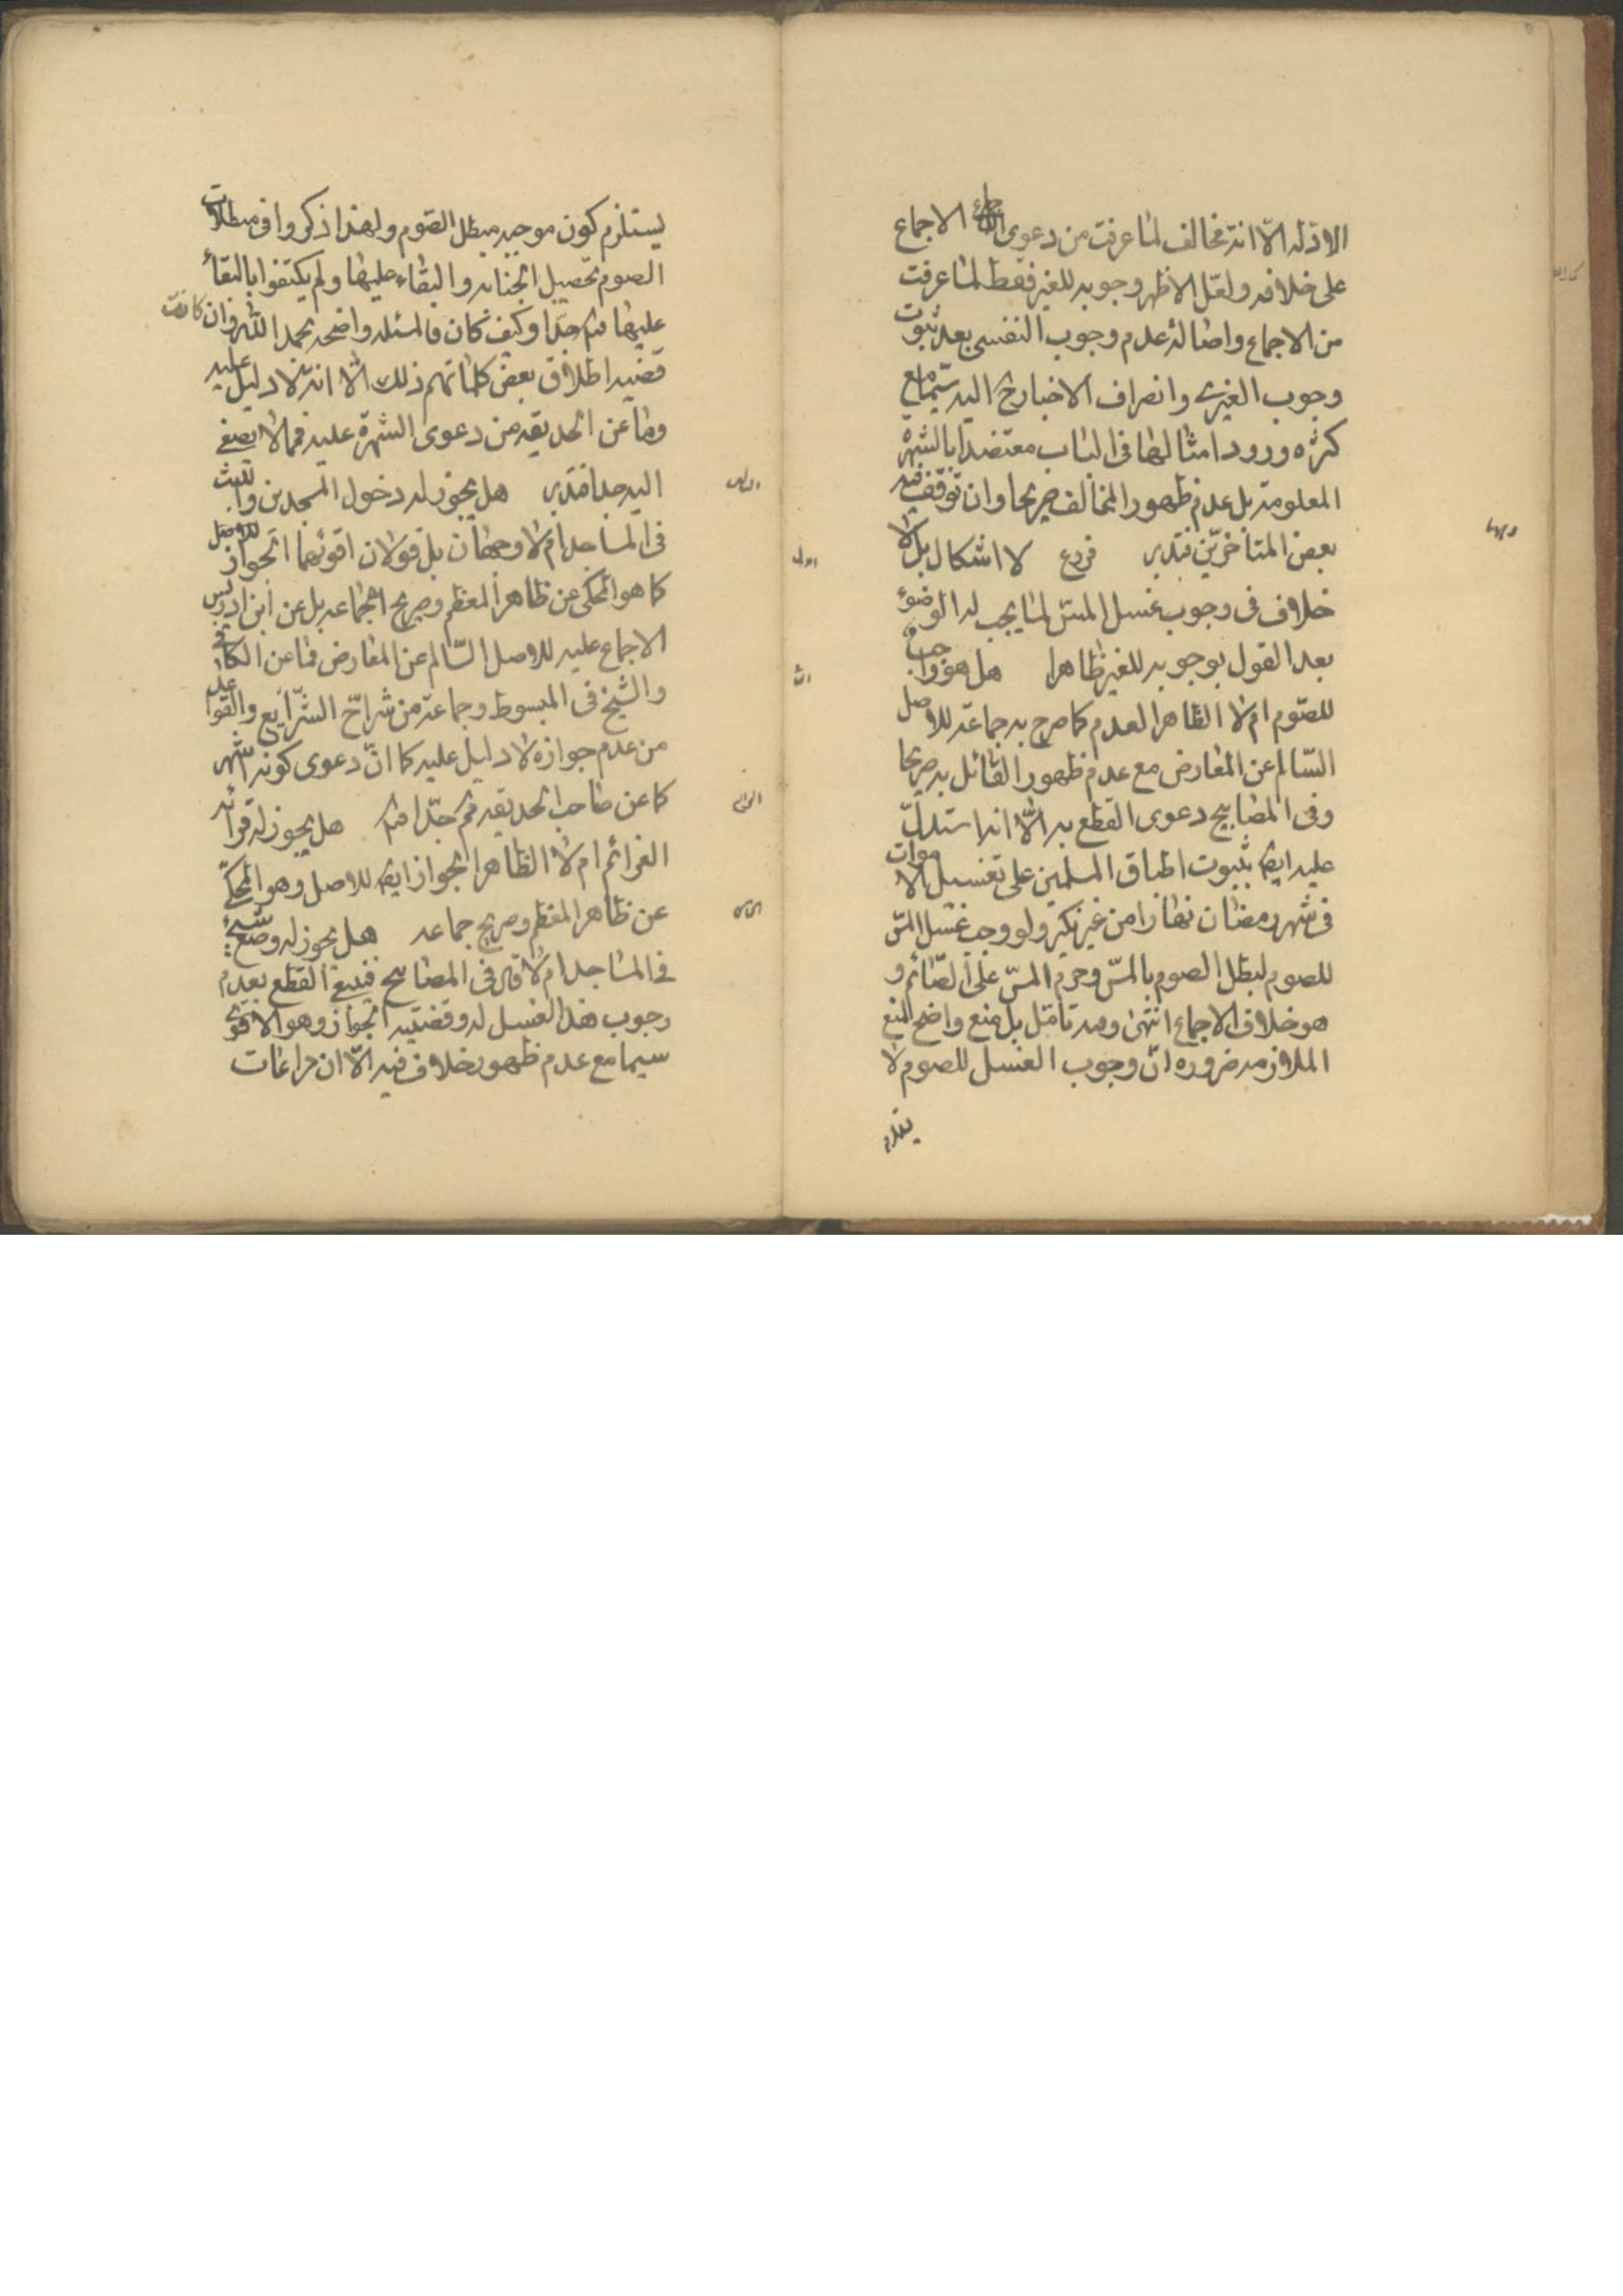 الادلة الّا انّه مخالف لما عرفت من دعوى الاجماع
على خلافه ولعلّ الاظهر وجوبه للغير فقط لما عرفت
من الاجماع واصالة عدم وجوب النفسى بعد ثبوت
وجوب الغيرى وانصراف الاخبار الى اليه سيّما مع
كثرة ورود امثالها فى الباب معتضدا بالشهرة
المعلومة بل عدم ظهور المخالف صريحا وان توقف فيه
بعض المتأخرّين فتدبر فروع لا اشكال بل لا
خلاف فى وجوب غسل المسّ لما يجب له الوضوء
بعد القول بوجوبه للغير ظاهرا هل هو واجب
للصّوم ام لا الظاهر العدم كما صرح به جماعة للاصل
السّالم عن المعارض مع عدم ظهور القائل به صريحا
وفى المصابيح دعوى القطع به الّا انه استدلّ
عليه ايضا بثبوت اطباق المسلمين على تغسيل الاموات
فى شهر رمضان نهارا من غير نكير ولو وجب غسل المسّ
للصوم لبطل الصوم بالمسّ وحرم المسّ على الصّائم و
هو خلاف الاجماع انتهى وفيه تامّل بل منع واضح لمنع
الملازمه ضروره انّ وجوب الغسل للصوم لا
يستلزم كون موجبه مبطل الصّوم ولهذا ذكروا فى مبطلات
الصوم تحصيل الجنابه والبقاء عليها ولم يكتفوا بالبقاء
عليها فتدبر جدّا وكيف كان فالمسئله واضحه بحمد الله وان كانت
قضيه اطلاق بعض كلماتهم ذلك الّا انه لا دليل عليه
وما عن الحديقه من دعوى الشهرة عليه فمما لا يصغى
اليه جدا فتدبر هل يجوز له دخول المسجدين واللبث
فى المساجد ام لا وجهان بل قولان اقوئهما الجواز للاصل
كما هو المحكى عن ظاهر المعظم وصريح الجماعه بل عن ابن ادريس
الاجماع عليه للاصل السّالم عن المعارض فما عن الكافى
والشيخ فى المبسوط وجماعة من شرّاح الشّرايع والقواعد
من عدم جوازه لا دليل عليه كما انّ دعوى كونه اشهر
كما عن صاحب الحديقه فتدبر جدّا هل يجوز له قرائه
العزائم ام لا الظاهر الجواز ايضا للاصل وهو المحكّى
عن ظاهر المعظم وصريح جماعه هل يجوز له وضع شيء
فى المساجد ام لا قال فى المصابيح فينبغى القطع بعدم
وجوب هذا الغسل له وقضيته الجواز وهو الاقوى
سيما مع عدم ظهور خلاف فيه الّا ان مراعات